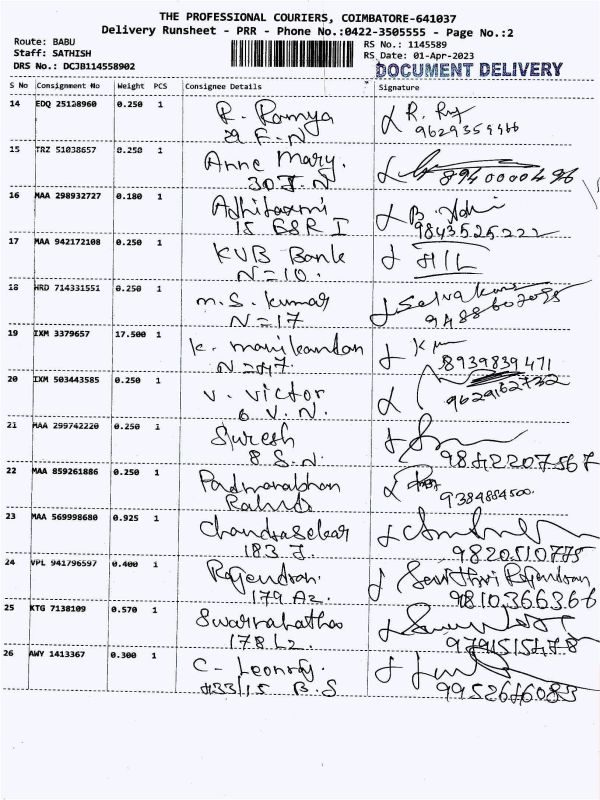 THE PROFESSIONAL COURIERS, COIMBATORE-641037
Delivery Runsheet - PRR - Phone No.:0422-3505555 - Page No.:2
Route: BABU
Staff: SATHISH
DRS No.: DCJB114558902
RS No.: 1145589
RS Date: 01-Apr-2023
DOCUMENT DELIVERY
S No Consignment No Weight PCS Consignee Details Signature
14 EDQ 25128960 0.250 1 R. Ramya R. Ry
29 F-N 9629359466
15 TRZ 51038657 0.250 1 Anne Mary.
30 J. N 8940000496
16 MAA 298932727 0.180 1 Adhilaxmi B. Adhi
15 BSR I 9843525222
17 MAA 942172108 0.250 1 KVB Bank
N=10.
18 HRD 714331551 0.250 1 m.s. kumar Selvakumar
N=17 9488602098
19 IXM 3379657 17.500 1 K. manikandan
N=47 8939839471
20 IXM 503443585 0.250 1 V. Victor
6 V.N. 9629162732
21 MAA 299742220 0.250 1 Suresh
8 S.N 9842207567
22 MAA 859261886 0.250 1 Padmanabhan
9384854500.
23 MAA 569998680 0.925 1 Chandrasekar
183 J. 9820510775
24 VPL 941796597 0.400 1 Rajendran. Savithri Rajendran
179 A2. 9810366366
25 KTG 7138109 0.570 1 Swarnalatha
178 L2. 9791515478
26 AWY 1413367 0.300 1 C-
433/15 B.S 9952646083